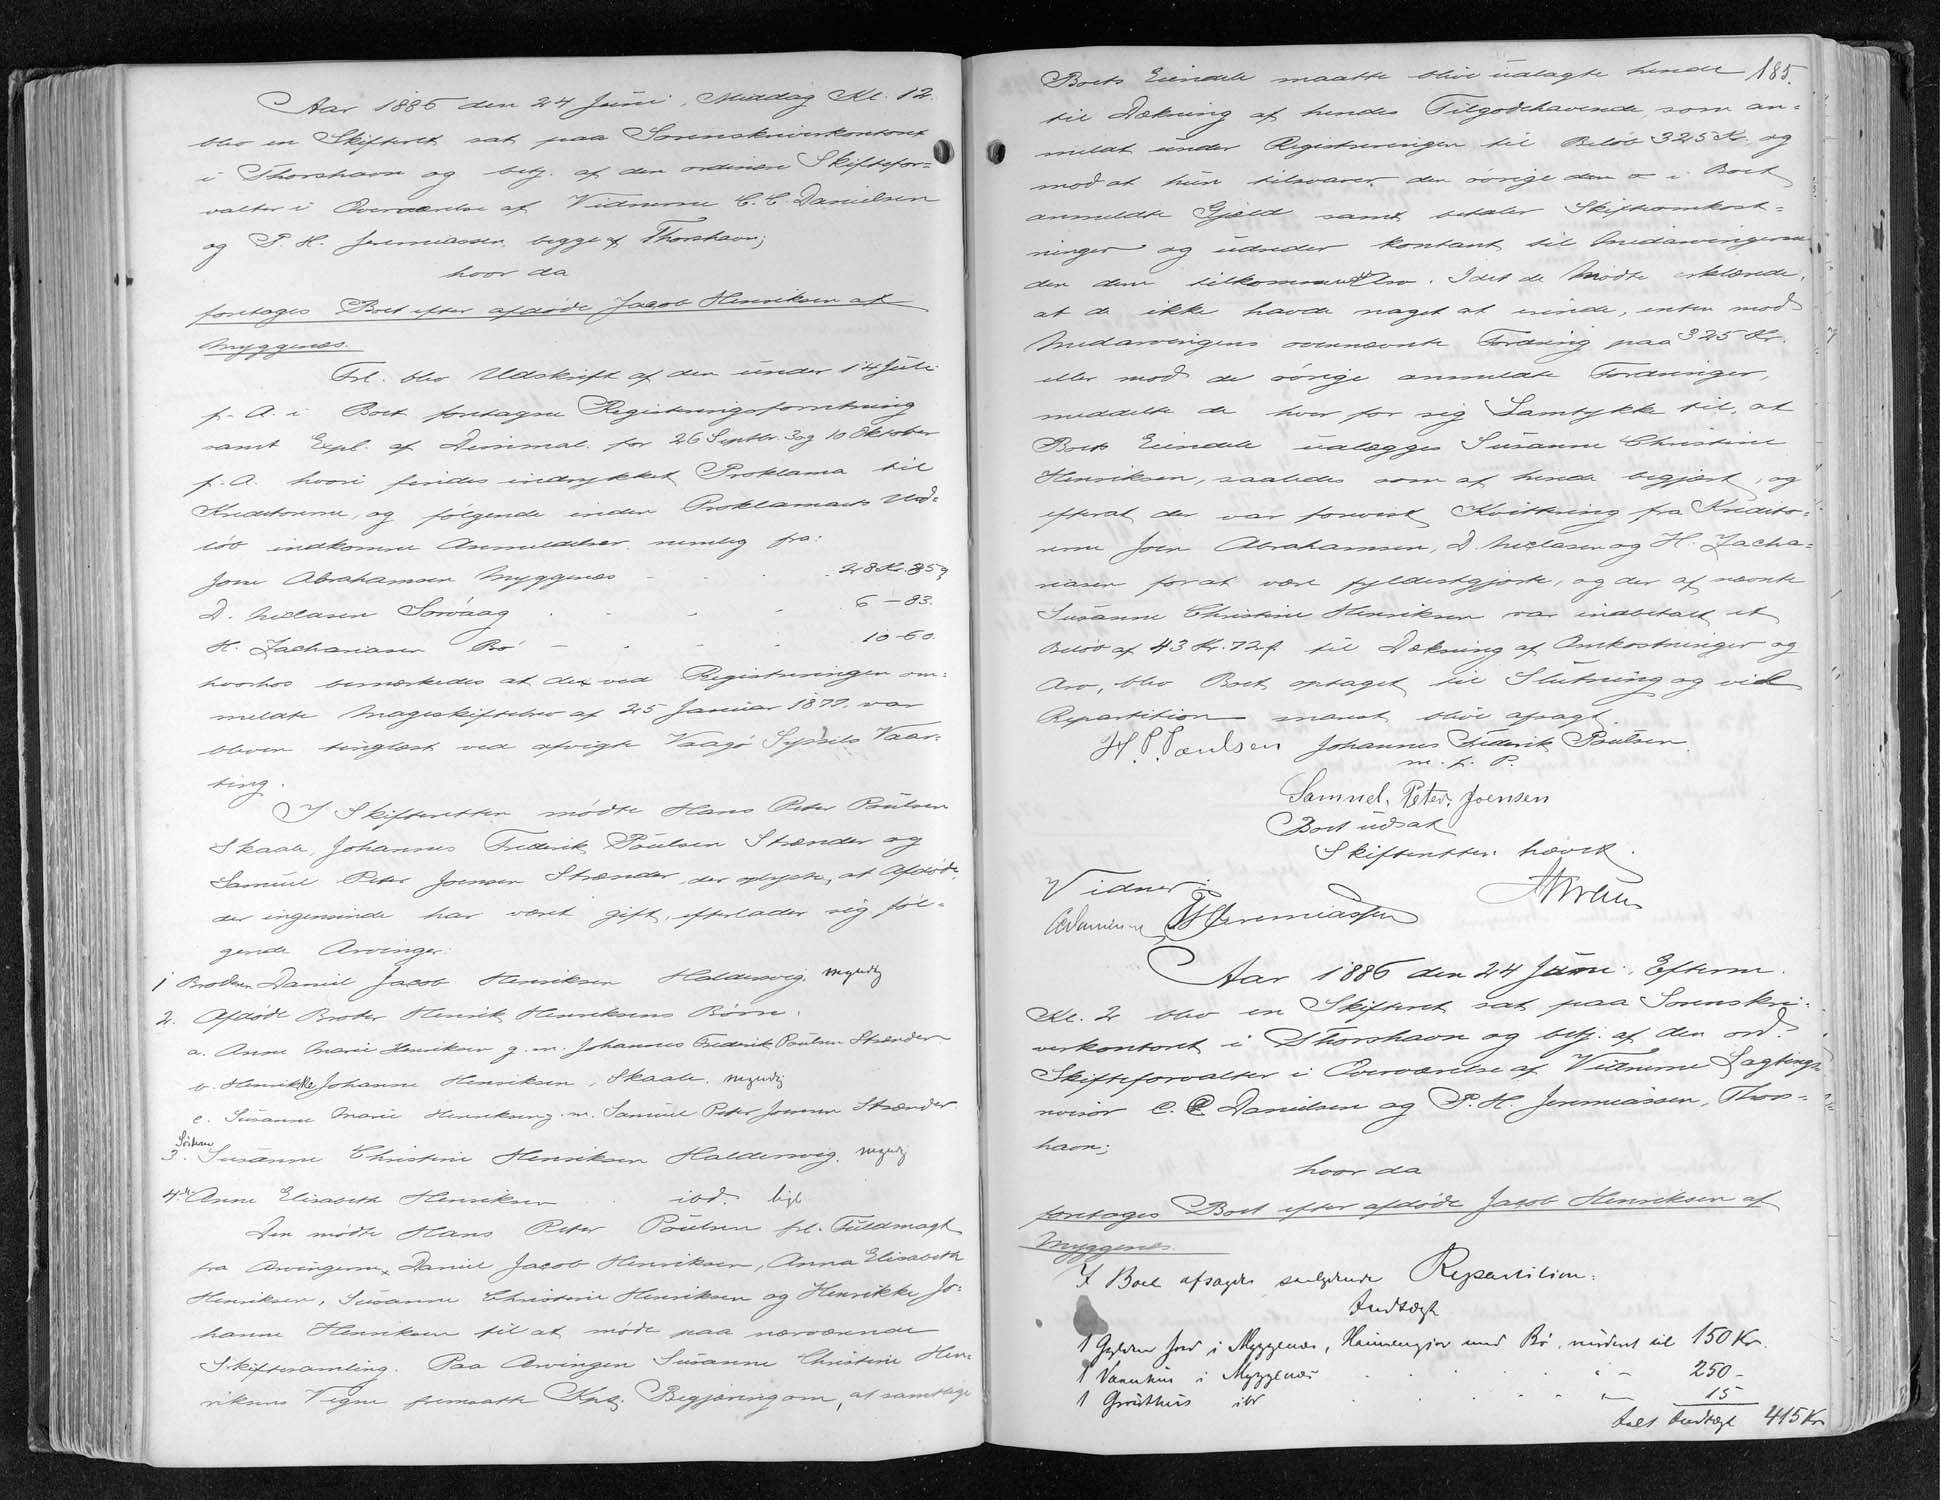 Aar 1886 den 24 Juni, Middag Kl. 12.
blev en Skifteret sat paa Sorenskriverkontoret
i Thorshavn og betj. af den ordinære Skiftefor-
valter i Overværelse af Vidnerne C. C. Danielsen
og P. H. Jeremiassen begge af Thorshavn;
hvor da
foretages Boet efter afdøde Jacob Henriksen af
Myggenæs.
Frl. blev Udskrift af den under 14 Juli
f. A. i Boet foretagne Registreringsforretning
samt Expl. af Dimmal. for 26 Septbr. 3 og 10 Oktober
f. A. hvori findes indrykket Proklama til
Kreditorerne, og følgende inden Proklamaets Ud-
løb indkomne Anmeldelser nemlig fra:
Joen Abrahamsen Myggenæs 28 Kr. 85
D. Niclasen Sørvaag 6 - 83.
H. Zachariasen Bø 10 - 60.
hvorhos bemærkedes at det ved Registreringen om-
meldte Mageskiftebrev af 25 Januar 1877. var
bleven tinglæst ved afvigte Vaagø Syssels Vaar-
ting.
I Skifteretten mødte Hans Peter Poulsen
Skaale, Johannes Frederik Poulsen Strænder og
Samuel Peter Joensen Strænder, der oplyste, at Afdøde,
der ingensinde har været gift, efterlader sig føl-
gende Arvinger:
1 Broderen Daniel Jacob Henriksen Haldersvig. myndig
2. Afdøde Broder Henrik Henriksens Børn.
a. Anne Marie Henriksen g. m. Johannes Frederik Poulsen Strænder
b. Henrikke Johanne Henriksen, Skaale. myndig
c. Susanne Marie Henriksen g. m. Samuel Peter Joensen Strænder
Søsteren
3. Susanne Christine Henriksen Haldersvig. myndig
4. do Anne Elisabeth Henriksen ibd. lige
Den mødte Hans Peter Poulsen frl. Fuldmagt
fra Arvingerne, Daniel Jacob Henriksen, Anna Elisabeth
Henriksen, Susanne Christine Henriksen og Henrikke Jo-
hanne Henriksen til at møde paa nærværende
Skiftesamling. Paa Arvingen Susanne Christine Hen-
riksens Vegne fremsatte Kpt. Begjæring om, at samtlige
185.
Boets Eiendele maatte blive udlagte hende
til Dækning af hendes Tilgodehavende, som an-
meldt under Registreringen til Beløb 325 Kr. og
mod at hun tilsvarer den øvrige den i Boet
anmeldte Gjæld samt betaler Skifteomkost-
ninger og udreder kontant til Medarvingerne
den dem tilkommende Arv. Idet de Mødte erklærede,
at de ikke havde noget at erindre, enten mod
Medarvingens ovennævnte Fordring paa 325 Kr.
eller mod de øvrige anmeldte Fordringer,
meddelte de hver for sig Samtykke til, at
Boets Eiendele udlægges Susanne Christine
Henriksen, saaledes som af hende begjært, og
efterat der var forevist Kvittring fra Kredito-
rerne Joen Abrahamsen, D. Niclasen og H. Zacha-
riasen for at være fyldestgjorte, og der af nævnte
Susanne Christine Henriksen var indbetalt et
Beløb af 43 Kr. 72 f. til Dækning af Omkostninger og
Arv, blev Boet optaget til Slutning og vil
Repartition snarest blive afsagt.
H. P. Poulsen Johannes Frederik Poulsen
m. f. P.
Samuel. Peter. Joensen
Boet udsat
Skifteretten hævet.
Vidner:
CCDanielsen PHJeremiassen
Aar 1886 den 24 Juni. Efterm.
Kl. 2 blev en Skifteret sat paa Sorenskri-
verkontoret i Thorshavn og betj. af den ord.
Skifteforvalter i Overværelse af Vidnerne Lagtings-
revisor C. C Danielsen og P. H. Jeremiassen, Thors-
havn;
hvor da
foretages Boet efter afdøde Jacob Henriksen af
Myggenæs.
I Boet afsagdes saalydende Repartition:
Indtægt
1 Gylden Jord i Myggenæs, Heimengjov med Bø, vurderet til 150 Kr.
1 Vaanhus i Myggenæs " - 250 -
1 Grouthuus ibd " - 15
Talt Indtægt 415 Kr